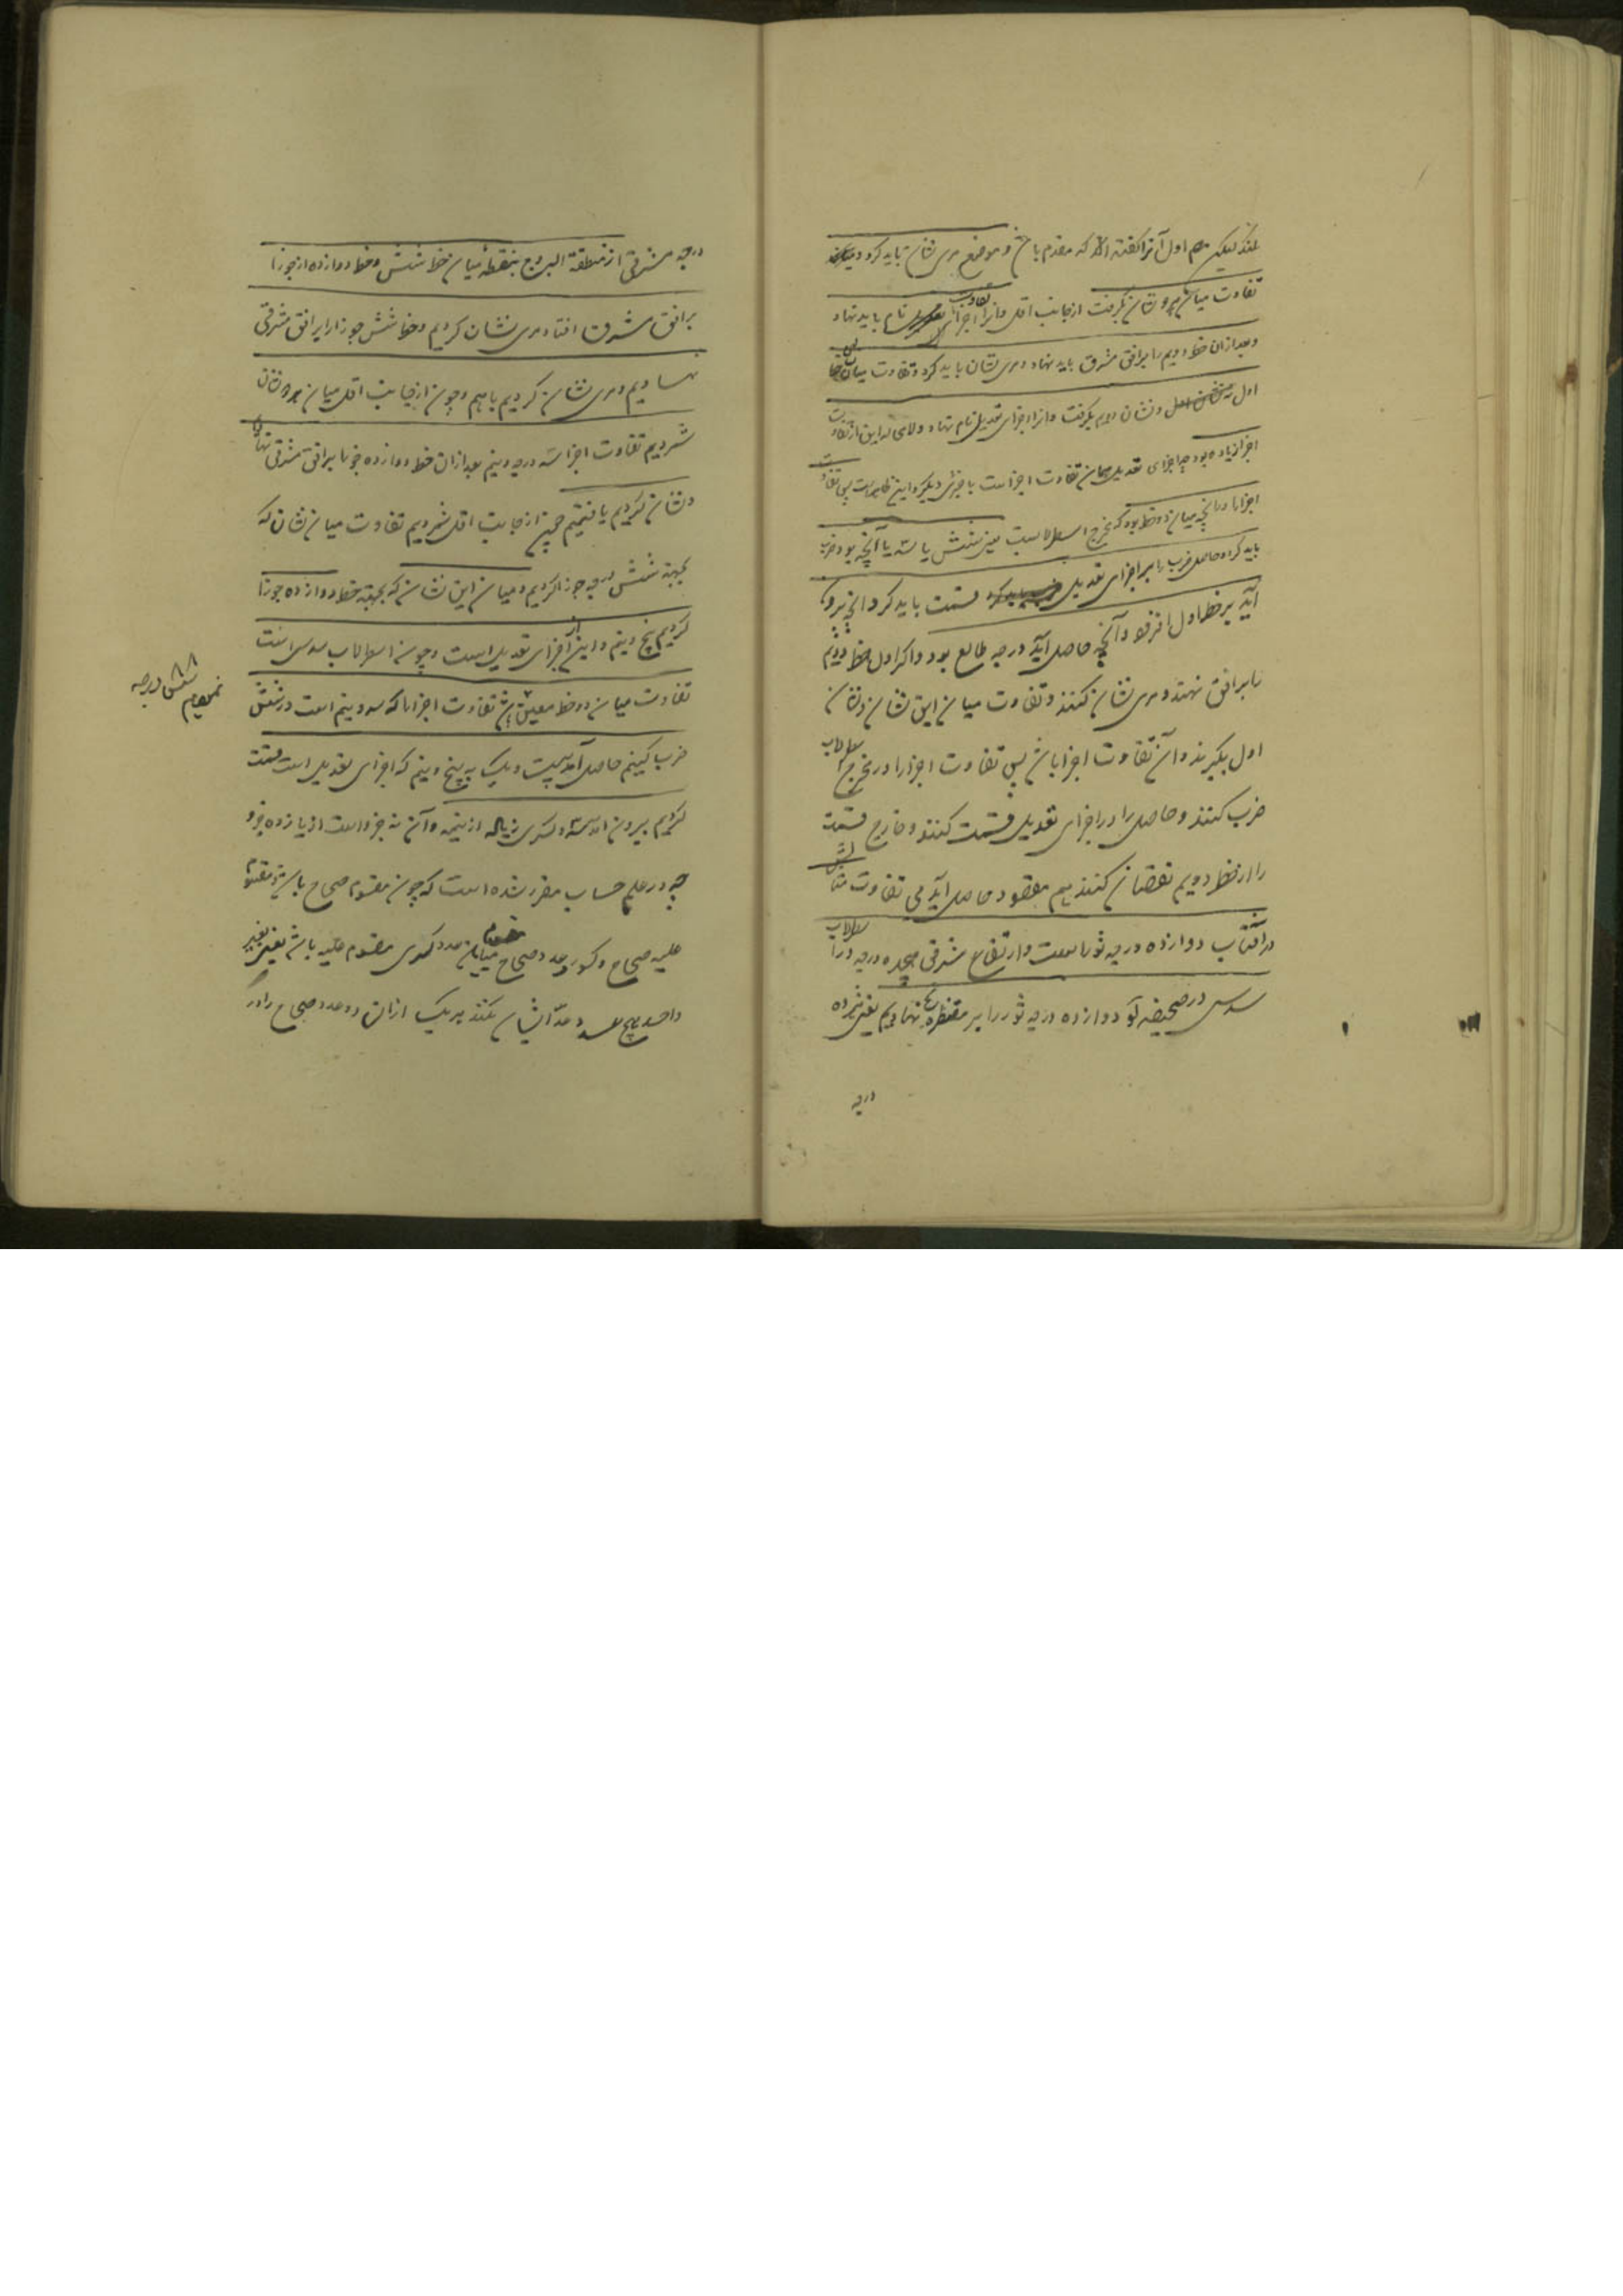 لیکن اول آنرا گفته اند که مقدم باشد و موضع مری نشان باید کرد
تفاوت میان هر دو نشان بگرفت از جانب اقل و آنرا تفاوت اجزا نام باید نهاد
و بعد از آن خط دویم را بر افق مشرق باید نهاد و مری نشان باید کرد و تفاوت میان
اول و نشان دویم بگرفت و آنرا اجزای تعدیل نام نهاد و این از تفاوت
اجزا زیاده بود چه اجزای تعدیل همان تفاوت اجزا است با چیزی دیگر و این ظاهر است پس تفاوت
اجزا را در آنچه میان دو خط بود که مخرج اسطرلاب است یعنی شش یا سه یا آنچه بود ضرب
باید کرد و حاصل ضرب را بر اجزای تعدیل قسمت باید کرد آنچه بیرون
آید بر خط اول افزود و آنچه حاصل آید درجه طالع بود و اگر اول خط دویم
را بر افق نهند و مری نشان کنند و تفاوت میان این نشان و نشان
اول بگیرند و آن تفاوت اجزا باشد پس تفاوت اجزا را در مخرج اسطرلاب
ضرب کنند و حاصل را در اجزای تعدیل قسمت کنند و خارج قسمت
را از خط دویم نقصان کنند هم مقصود حاصل آید بی تفاوت مثالش
در آفتاب دوازده درجه ثور است و ارتفاع شرقی هجده درجه در اسطرلاب
سدس در صحیفه دوازده درجه ثور را بر مقنطره نهادیم یعنی هژده
درجه
درجه مشرقی از منطقة البروج بنقطه میان خط شش و خط دوازده از جوزا
بر افق مشرق افتاد مری نشان کردیم و خط شش جوزا را بر افق مشرقی
نهادیم و مری نشان کردیم باهم و چون از جانب اقل میان هر دو نشان
شمردیم تفاوت اجزا سه درجه و نیم بعد از آن خط دوازده جوزا بر افق مشرقی نهادیم
و نشان کردیم یافتیم چون از جانب اقل شمردیم تفاوت میان نشان که
بجهة شش درجه جوزا کردیم و میان این نشان که بجهة خط دوازده جوزا
کردیم پنج و نیم و این اجزای تعدیل است و چون اسطرلاب سدس است
تفاوت میان دو خط معین شش تفاوت اجزا را که سه و نیم است در شش
شش درجه
ضرب کنیم حاصل آمد بیست و یک بر پنج و نیم که اجزای تعدیل است قسمت
کردیم بیرون آمد سه و کسری زیاده از نیمه و آن نه جزو است از یازده جزو
چه در علم حساب مقرر شده است که چون مقسوم صحاح باشد و مقسوم
علیه صحاح و کسور عدد صحاح مقسوم میان عدد کسری مقسوم علیه باشد یعنی بغیر
واحد هیچ عدد عد ایشان نکند هر یک از آن دو عدد صحاح را در